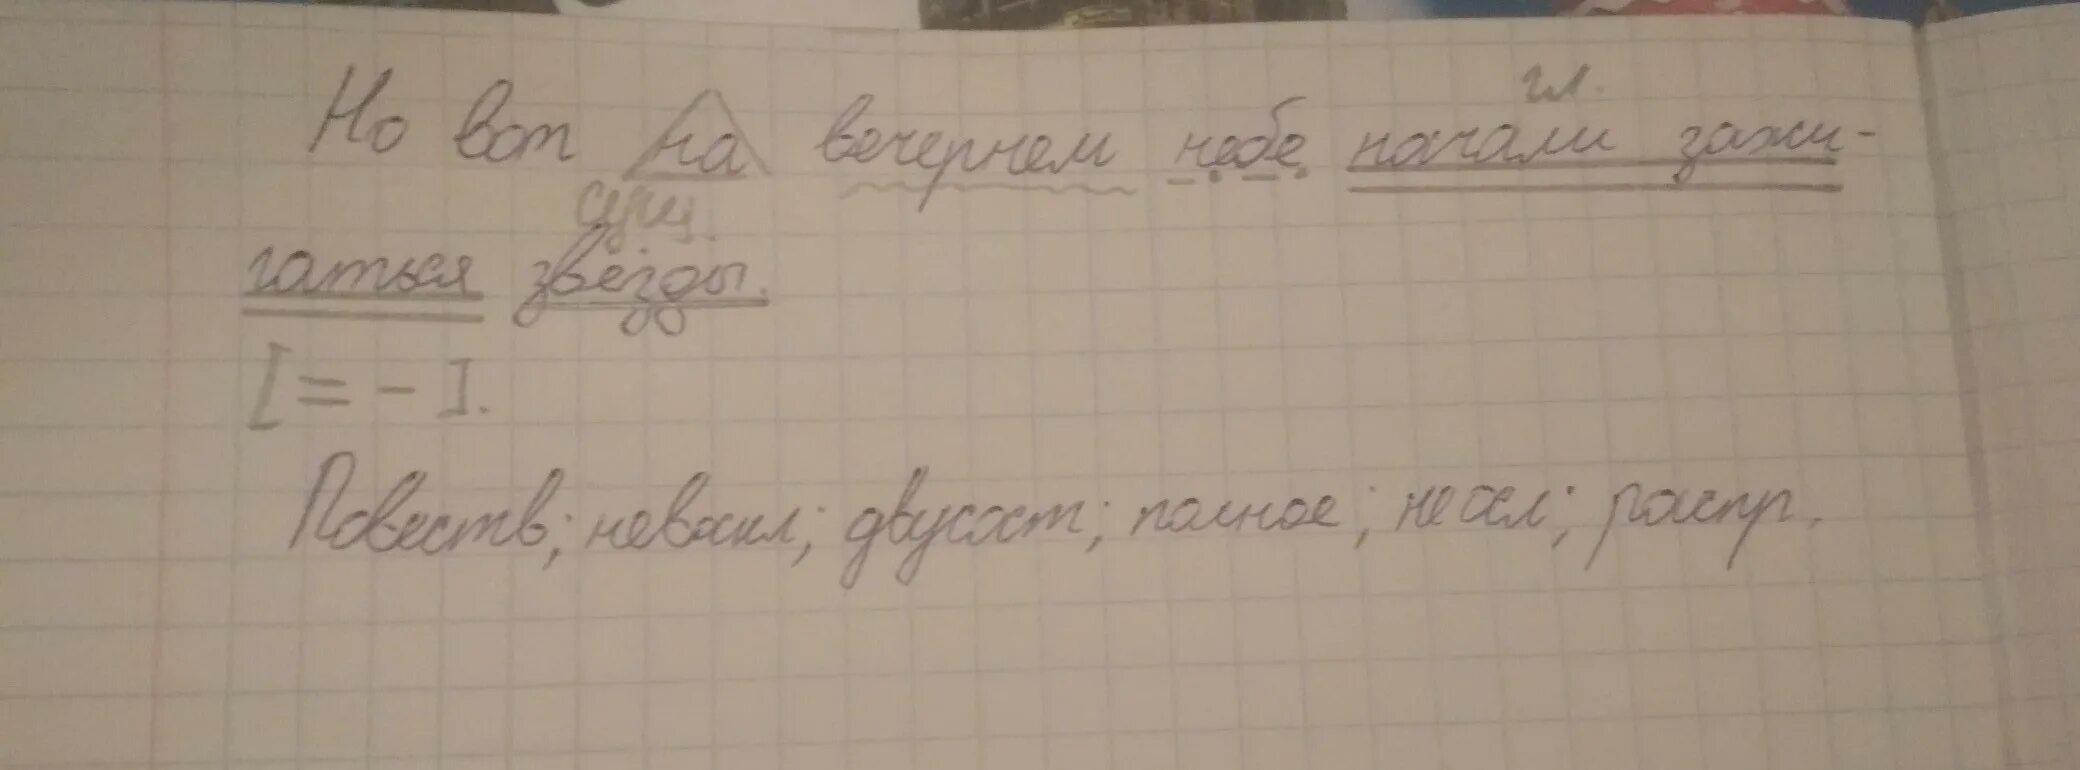 гл.
Но вот на вечернем небе начали зажи-
сущ.
гаться звёзды.
[= -].
Повеств; невоскл; двусост; полное; неосл; распр.